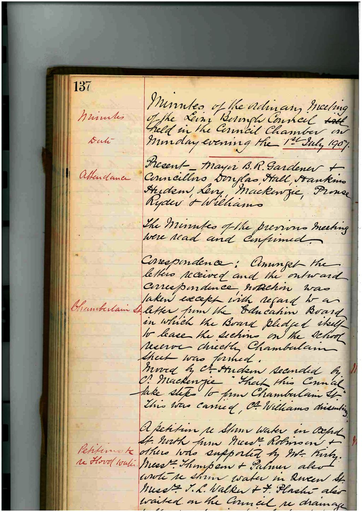 137
Minutes
Date
Attendance
Chamberlain St
Petition
re Flood water
Minutes of the ordinary Meeting
of the Levin Borough Council
held in the Council Chamber on
Monday evening the 1st July 1907
Present, Mayor B.R. Gardener &
Councillors Douglas, Hall, Hankins
Hudson, Levy, Mackenzie, Prouse
Ryder & Williams
The Minutes of the previous Meeting
were read and confirmed
Correspondence; Amongst the
letters received and the outward
correspondence no action was
taken except with regard to a
letter from the Education Board
in which the Board pledged itself
to lease the sections on the school
reserve directly Chamberlain
street was formed.
Moved by Cr Hudson seconded by
Cr Mackenzie "That this Council
take steps to form Chamberlain St"
This was carried, Cr Williams
A petition re storm water in Oxford
St North from Messrs Robinson &
others was supported by Mr Kirby.
Messrs Thompson & Palmer also
wrote re storm water in Queen St
Messrs T.L. Walker & F. also
waited on the Council re drainage